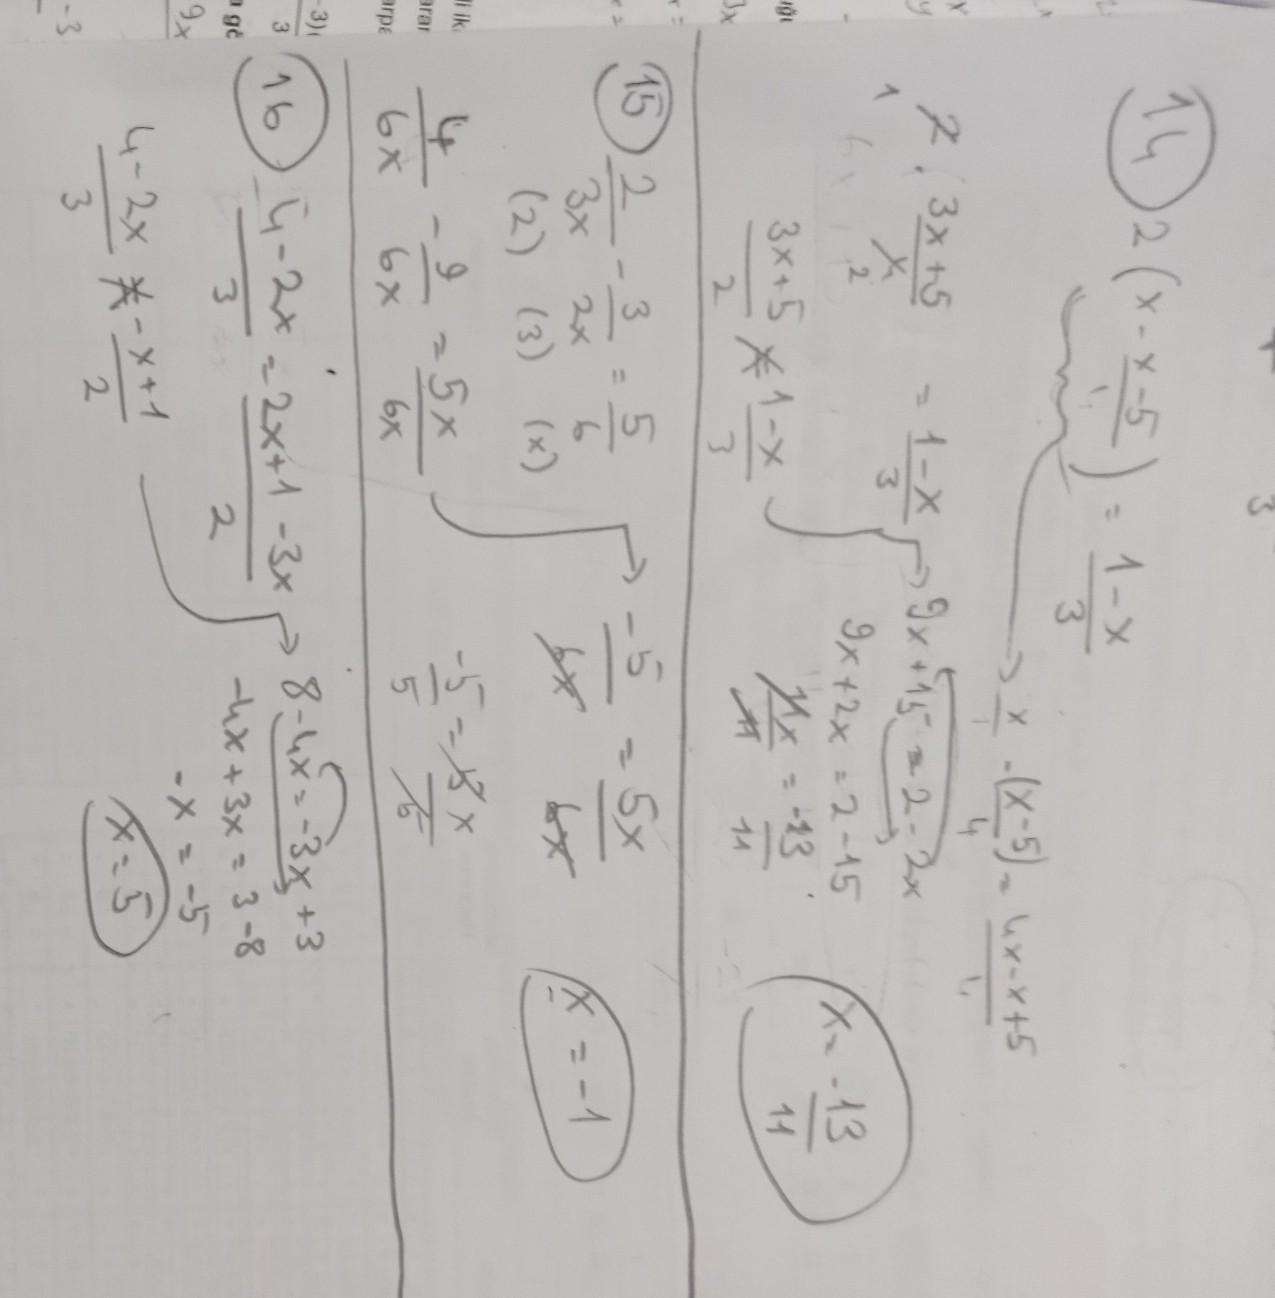 14) 2(x - x-5/4) = 1-x/3
x/1 - (x-5)/4 = 4x-x+5/4
2 . 3x+5/4 = 1-x/3
1 2
3x+5/2 x 1-x/3
9x+15 = 2-2x
9x+2x = 2-15
11x/11 = -13/11
x = -13/11
15) 2/3x - 3/2x = 5/6
(2) (3) (x)
4/6x - 9/6x = 5x/6x
-5/6x = 5x/6x
-5/5 = 5x/5
x = -1
16) 4-2x/3 = 2x+1-3x/2
4-2x/3 x -x+1/2
8-4x = -3x+3
-4x+3x = 3-8
-x = -5
x = 5